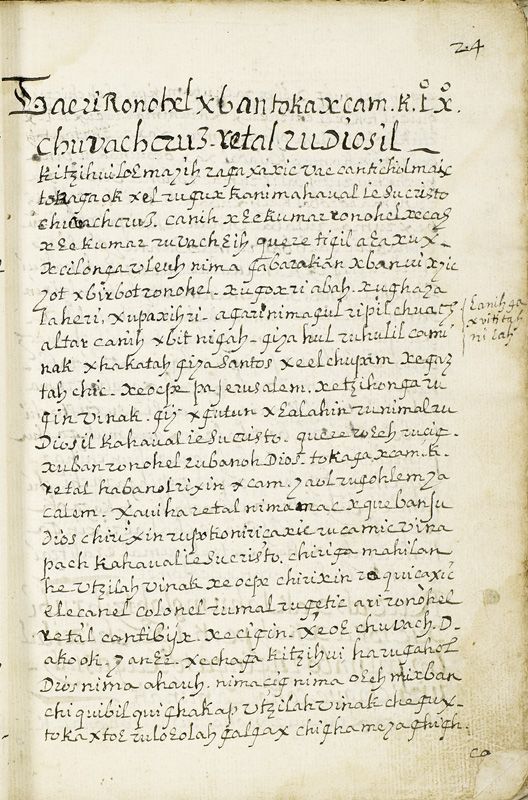 24
Taeri Ronohel xbantokaxcam. k. I X.
chuvachcruz. retal ruDiosil
kitzihuiloE mayih ragaxaxic vae canticholmaix
tokagaok xel rugux kanimahaval iesucristo
chuvachcruz. canih xEekumar ronohel xecah
xEekumar ruvachEih, quere tigil
xcilonga vleuh nima gabarakan xbanvixyic
yot xbirbot ronohel. xugoxri abah. xughaya
Taheri. xupaxihri. agarinimagul ripil chuach
altar canih xbit nigah. giya hul ruhulil cami
nak xhakatah giya santos xeelchupam xegaz
tah chic. xeocpe pa Jerusalem. xetzihonga ru
gin vinak. gij xgutun xEalahin runimalru
Diosil kahaval iesucristo. quere
xuban ronohel rubanoh Dios. tokaga xcam. k.
retal habanol rixin xcam. yaol rugohlem ya
calem. xavi ha retal nimamac xqueban su
Dios chirixin rupokoniricaxic rucamic vina
pach kahaval iesucristo. chiriga mahilan
he vtzilah vinak xeocpe chirixin quicaxic
elecanel colonel rumal rugetic ari ronohel
retal cantibijx. xecigin. xeoE chuvach. D.
akook. yanEe. xechaga kitzihui harugahol
Dios nima ahauh. nimacig nima oEeh mixban
chiquibil quighakap vtzilah vinak chegux-
tokaxtoE ruloEolah galgax chighameyaghigh.
canih ga
xvititah
nilah
co